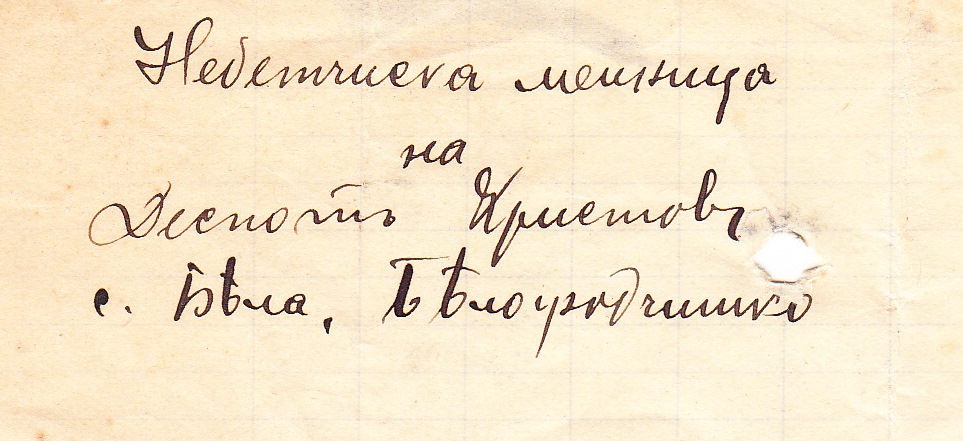 Небетчиска мелница
на
Деспотъ Христовъ
с. Бѣла, Бѣлоградчишко